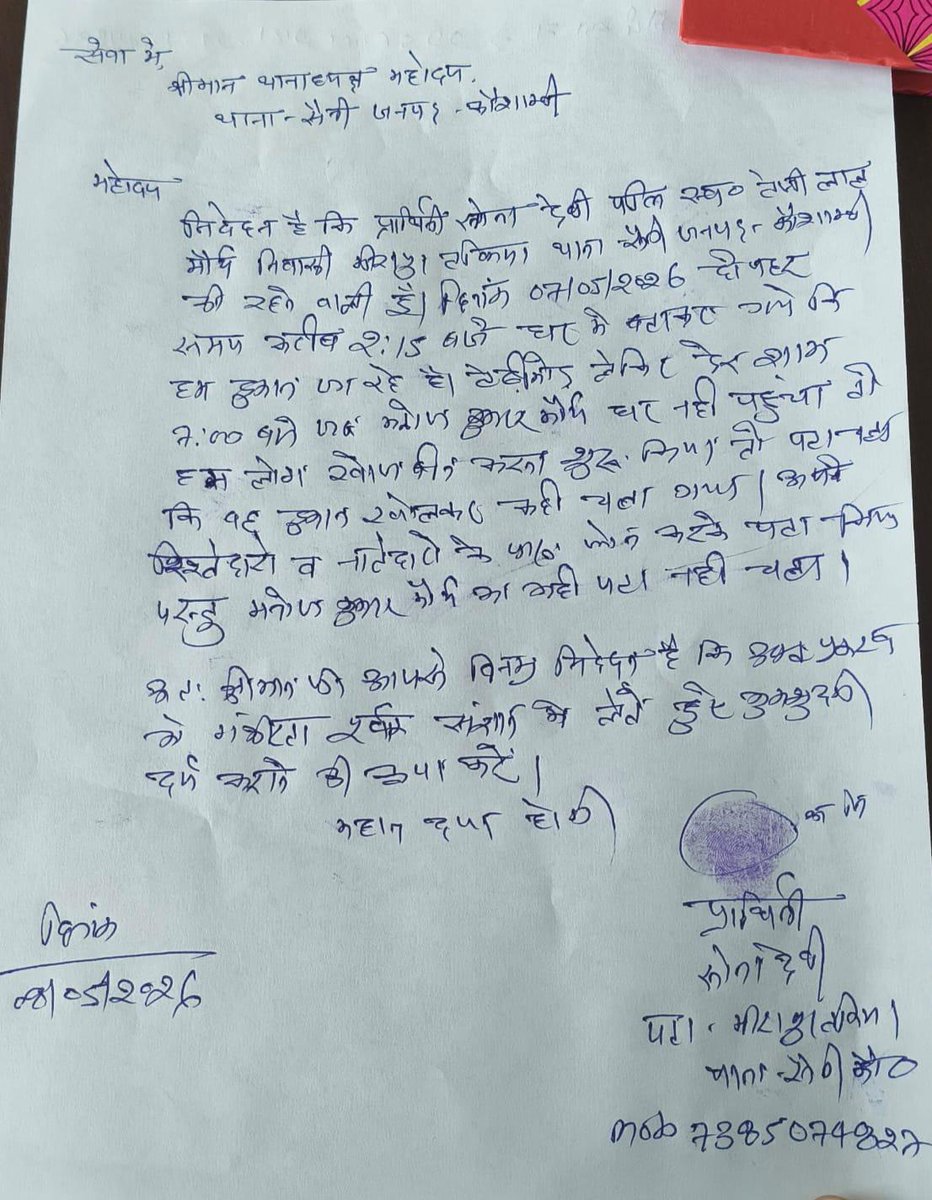 सेवा में,
श्रीमान थानाध्यक्ष महोदय.
थाना - सैनी जनपद - कौशाम्बी
महोदय
निवेदन है कि प्रार्थिनी सोना देवी पत्नि स्व०
मौर्य निवासी थाना सैनी जनपद - कौशाम्बी
की रहने वाली है। दिनांक 07/05/2026 दोपहर
समय करीब 2:15 बजे घर में बताकर गये कि
हम दुकान जा रहे है। लेकिन देर शाम
7:00 बजे जब मनोज कुमार मौर्य घर नही पहुंचा तो
हम लोग खोजबीन करना शुरू किया तो पता चला
कि वह दुकान खोलकर कही चला गया। अपने
रिश्तेदारो व नातेदारो के पास फोन करके पता किया
परन्तु मनोज कुमार मौर्य का कही पता नही चला।
अतः श्रीमान जी आपसे विनम्र निवेदन है कि उक्त प्रकरण
को गंभीरता पूर्वक संज्ञान में लेते हुए गुमशुदगी
दर्ज कराने की कृपा करें।
महान दया होगी
प्रार्थिनी
सोना देवी
पता -
थाना - सैनी कौ०
mob 7385074827
दिनांक
08/05/2026